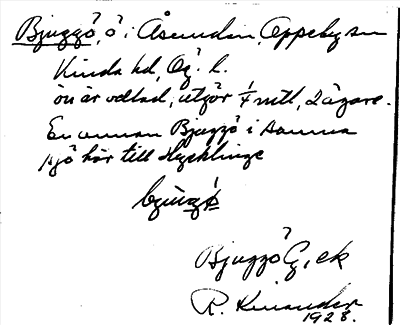 Bjuggö, ö i Åsunden, Oppeby sn
Kinda hd, Ög. l.
ön är odlad, utgör 1/4 mtl, 2 ägare.
En annan Bjuggö i samma
sjö hör till Hycklinge
Bjuggö G, ek
R. Kinander
1928.